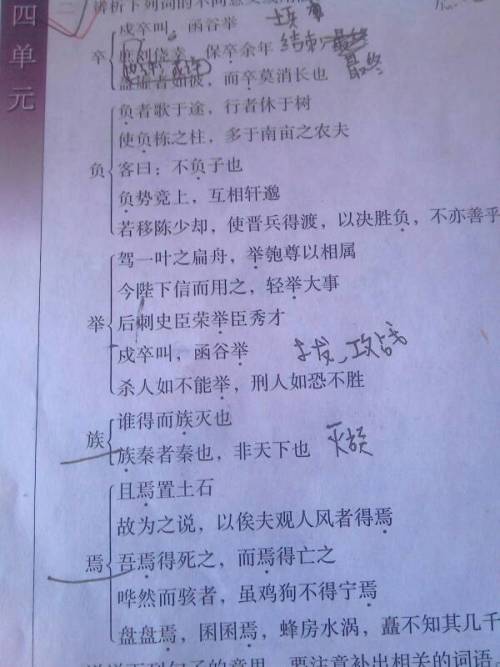 四单元
二、辨析下列词的不同意义或用法
卒
戍卒叫，函谷举
侥幸，保卒余年 结束
盈虚者如彼，而卒莫消长也 最终
负
负者歌于途，行者休于树
使负栋之柱，多于南亩之农夫
客曰：不负子也
负势竞上，互相轩邈
若移陈少却，使晋兵得渡，以决胜负，不亦善乎
举
驾一叶之扁舟，举匏尊以相属
今陛下信而用之，轻举大事
后刺史臣荣举臣秀才
戍卒叫，函谷举 攻占
杀人如不能举，刑人如恐不胜
族
谁得而族灭也
族秦者秦也，非天下也 灭族
焉
且焉置土石
故为之说，以俟夫观人风者得焉
吾焉得死之，而焉得亡之
哗然而骇者，虽鸡狗不得宁焉
盘盘焉，囷囷焉，蜂房水涡，矗不知其几千
下列句子的意思，要注意补出相关的词语